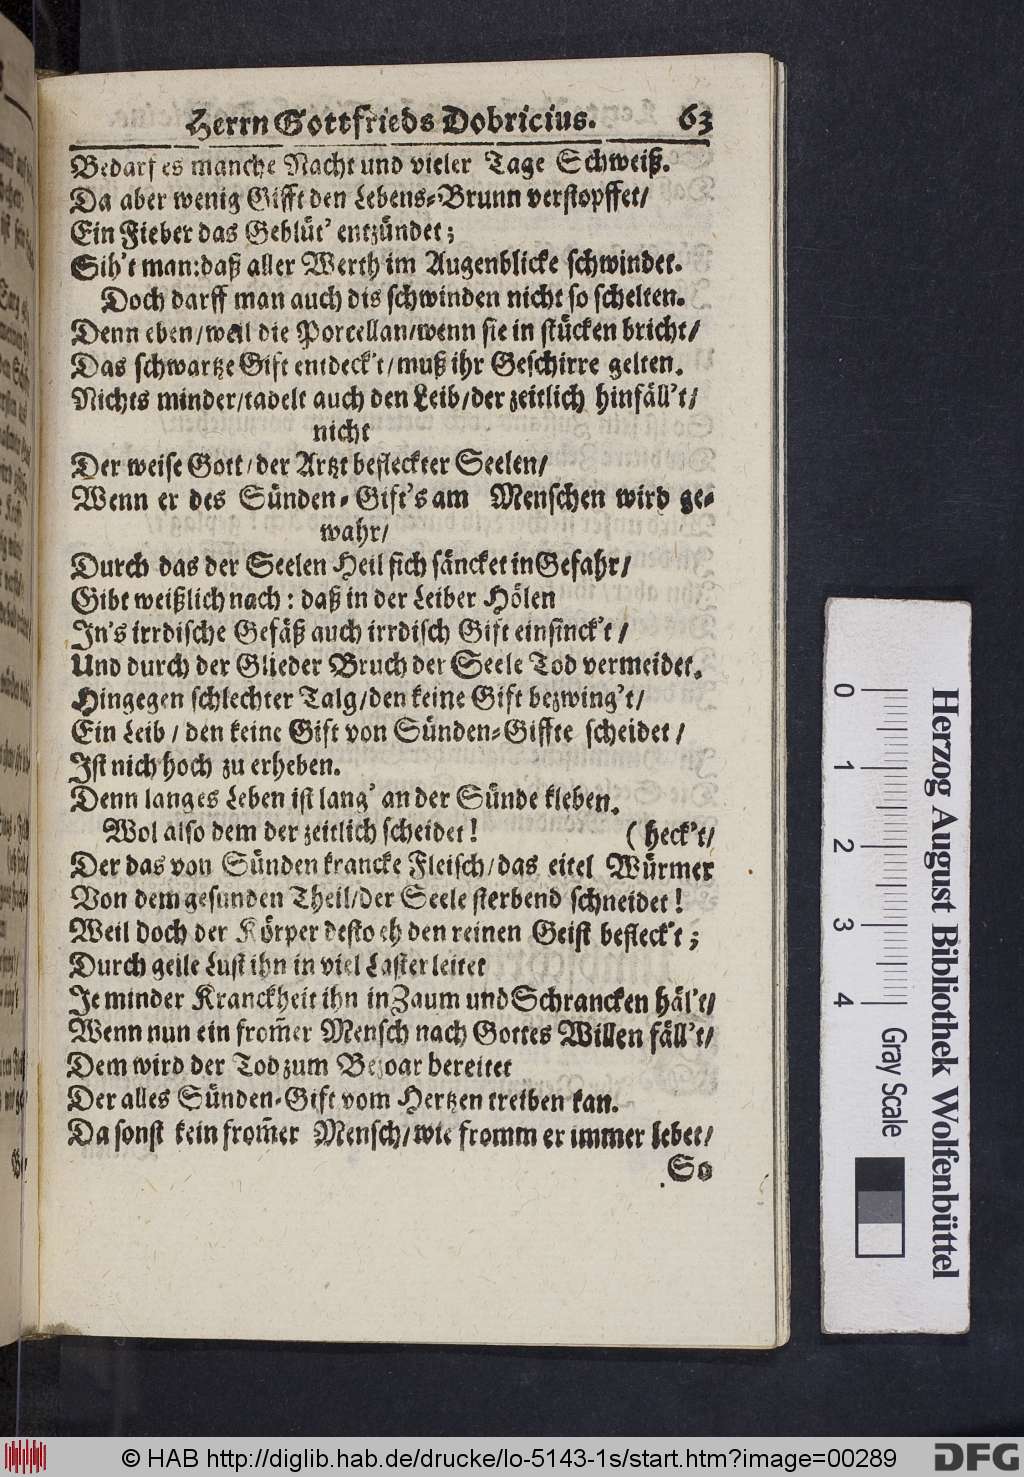 Herrn Gottfrieds Dobricius. 63
Bedarf es manche Nacht und vieler Tage Schweiß.
Da aber wenig Gifft den Lebens-Brunn verstopffet/
Ein Fieber das Geblüt' entzündet;
Sih't man: daß aller Werth im Augenblicke schwindet.
Doch darff man auch dis schwinden nicht so schelten.
Denn eben/ weil die Porcellan/ wenn sie in stücken bricht/
Das schwartze Gift entdeck't/ muß ihr Geschirre gelten.
Nichts minder/ tadelt auch den Leib/ der zeitlich hinfäll't/
nicht
Der weise Gott/ der Artzt befleckter Seelen/
Wenn er des Sünden-Gift's am Menschen wird ge-
wahr/
Durch das der Seelen Heil sich säncket in Gefahr/
Gibt weißlich nach: daß in der Leiber Hölen
In's irrdische Gefäß auch irrdisch Gift einsinck't/
Und durch der Glieder Bruch der Seele Tod vermeidet.
Hingegen schlechter Talg/ den keine Gift bezwing't/
Ein Leib/ den keine Gift von Sünden-Giffte scheidet/
Ist nich hoch zu erheben.
Denn langes Leben ist lang' an der Sünde kleben.
Wol also dem der zeitlich scheidet! (heck't/
Der das von Sünden krancke Fleisch/ das eitel Würmer
Von dem gesunden Theil/ der Seele sterbend schneidet!
Weil doch der Körper desto eh den reinen Geist befleck't;
Durch geile Lust ihn in viel Laster leitet
Je minder Kranckheit ihn in Zaum und Schrancken häl't/
Wenn nun ein from̃er Mensch nach Gottes Willen fäll't/
Dem wird der Tod zum Bezoar bereitet
Der alles Sünden-Gift vom Hertzen treiben kan.
Da sonst kein from̃er Mensch/ wie fromm er immer lebet/
So
0 1 2 3 4
Gray Scale
Herzog August Bibliothek Wolfenbüttel
© HAB http://diglib.hab.de/drucke/lo-5143-1s/start.htm?image=00289
DFG